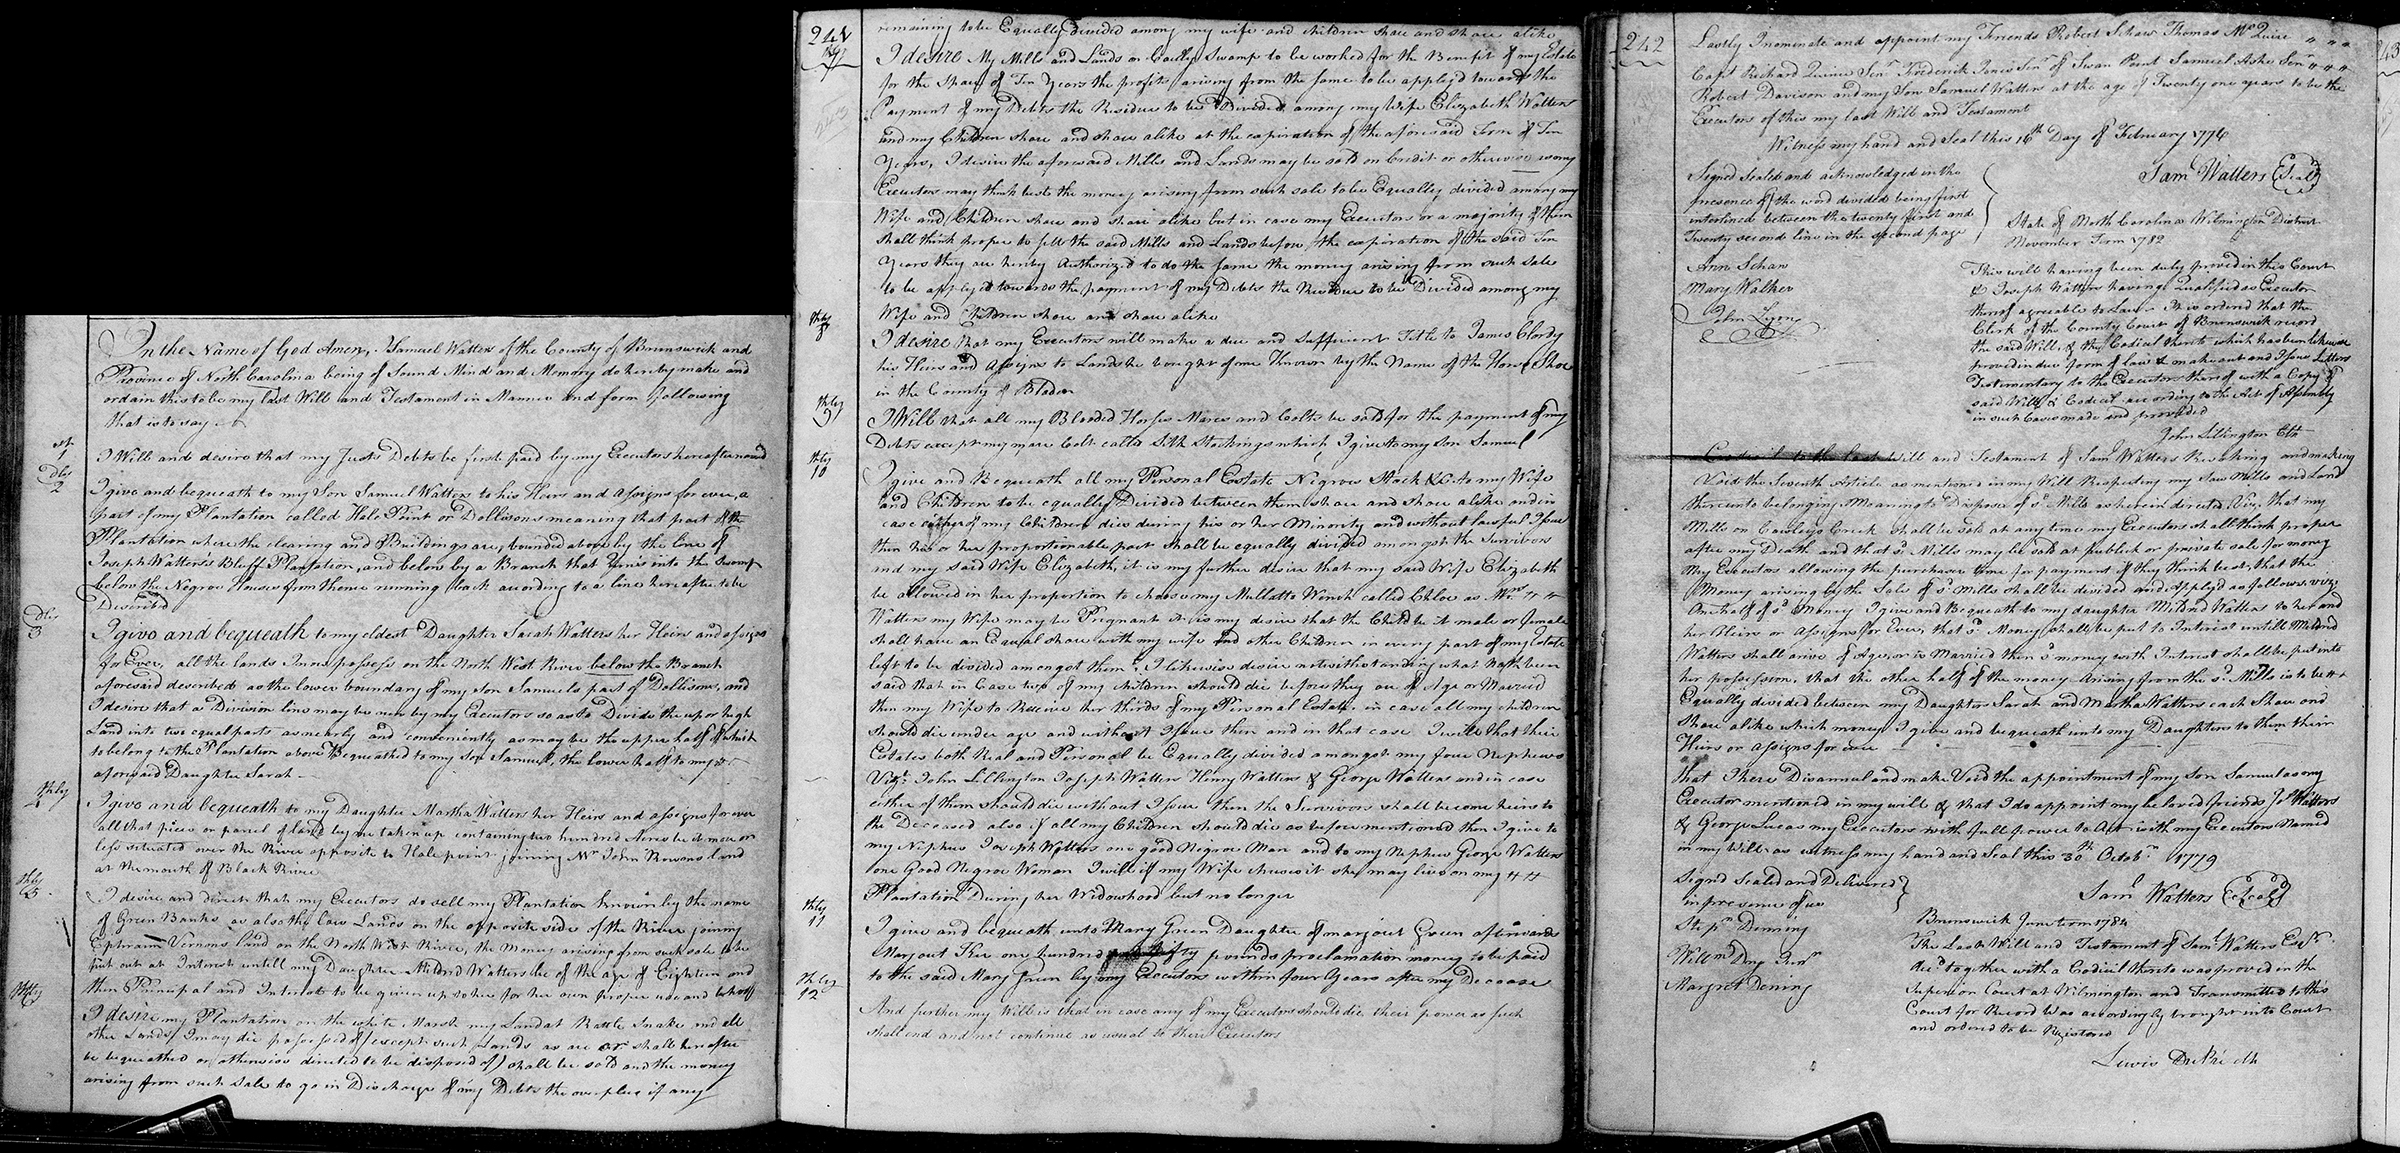 In the Name of God Amen, I Samuel Watters of the County of Brunswick and
Province of North Carolina being of Sound Mind and Memory do hereby make and
ordain this to be my last Will and Testament in Manner and form following
that is to say
1st I Will and desire that my Just Debts be first paid by my Executors hereafter named
2 I give and bequeath to my Son Samuel Watters to his Heirs and Assigns for ever, a
part of my Plantation called Hale Point or Dollisons meaning that part of the
Plantation where the clearing and Buildings are, bounded above by the line of
Joseph Watters's Bluff Plantation, and below by a Branch that runs into the Swamp
below the Negroe Houses from thence running back according to a line hereafter to be
Described
3 I give and bequeath to my eldest Daughter Sarah Watters her Heirs and assigns
for Ever, all the lands I now possess on the North West River below the Branch
aforesaid described as the lower boundary of my Son Samuels part of Dollisons, and
I desire that a Division line may be run by my Executors so as to Divide the up or high
Land into two equal parts as nearly and conveniently as may be the upper half of which
to belong to the Plantation above Bequeathed to my Son Samuel, the lower half to my
aforesaid Daughter Sarah
4thly I give and bequeath to my Daughter Martha Watters her Heirs and assigns for ever
all that piece or parcel of land by me taken up containing two hundred Acres be it more or
less situated over the River opposite to Hale point joining Mr John Rowans land
at the mouth of Black River
5thly I desire and direct that my Executors do sell my Plantation known by the name
of Green Banks as also the Low Lands on the opposite side of the River joining
Ephraim Vernons land on the North West River, the Money arising from such sale to be
put out at Interest untill my Daughter Mildred Watters be of the age of Eighteen and
then Principal and Interest to be given up to her for her own proper use and behoff
I desire my Plantation on the white Marsh my Land at Rattle Snake and all
other Lands I may die possessed of (except such Lands as are or shall hereafter
be bequeathed or otherwise directed to be disposed of) shall be sold and the money
arising from such sale to go in Discharge of my Debts the overplus if any
241
remaining to be Equally Divided among my wife and children share and share alike
I desire My Mills and Lands on Cawley Swamp to be worked for the Benefit of my Estate
for the Space of Ten Years the profits arising from the same to be apply'd toward the
Payment of my Debts the Residue to be Divided among my Wife Elizabeth Watters
and my Children share and share alike at the expiration of the aforesaid Term of Ten
Years, I desire the aforesaid Mills and Lands may be sold on Credit or otherwise as my
Executors may think best the money arising from such sale to be Equally divided among my
Wife and Children share and share alike but in case my Executors or a majority of them
shall think proper to sell the said Mills and Lands before the expiration of the said Ten
Years they are hereby Authorized to do the same the money arising from such sale
to be apply'd towards the payment of my Debts the Residue to be Divided among my
Wife and Children share and share alike
8 I desire that my Executors will make a due and Sufficient Title to James
his Heirs and Assigns to Lands he bought of me Known by the Name of the Horse Shoe
in the County of Bladen
9 I Will that all my Blooded Horses Mares and Colts be sold for the payment of my
Debts except my mare Colt called Silk Stockings which I give to my Son Samuel
10 I give and Bequeath all my Personal Estate Negroes Stock &c to my Wife
and Children to be equally Divided between them share and share alike and in
case either of my Children dies during his or her Minority and without lawful Issue
then his or her proportionable part shall be equally divided amongst the Survivors
and my said Wife Elizabeth, it is my further desire that my said Wife Elizabeth
be allowed in her proportion to choose my Mullatto Wench called Chloe as Mrs
Watters my Wife may be Pregnant it is my desire that the Child be it male or female
shall have an Equal share with my wife and other Children in every part of my Estate
left to be divided amongst them, I likewise desire notwithstanding what hath been
said that in Case two of my children should die before they are of Age or Married
then my Wife to Receive her thirds of my Personal Estate in case all my children
should die under age and without Issue then and in that case I will that their
Estates both Real and Personal be Equally divided amongst my four Nephews
Vizt John Lillington Joseph Watters Henry Watters & George Watters and in case
either of them should die without Issue then the Survivors shall become heirs to
the Deceased also if all my Children should die as before mentioned then I give to
my Nephew Joseph Watters one good Negroe Man and to my Nephew George Watters
one Good Negroe Woman I will if my Wife chuses it she may live on my
Plantation During her Widowhood but no longer
11 I give and bequeath unto Mary Green Daughter of Margaret Green afterwards
Margaret one hundred fifty pounds proclamation money to be paid
to the said Mary Green by my Executors within four Years after my Decease
12 And further my Will is that in case any of my Executors should die their power as such
shall end and not continue as usual to their Executors
242
Lastly I nominate and appoint my Friends Robert Schaw Thomas McGuire
Capt Richard Quince Senr Frederick Jones Senr of Swan Point Samuel Ashe Senr
Robert Davison and my Son Samuel Watters at the age of Twenty one years to be the
Executors of this my last Will and Testament
Witness my hand and Seal this 16th Day of February 1776
Saml Watters (Seal)
Signed Sealed and acknowledged in the
presence of the word divided being first
interlined between the twenty first and
Twenty second line in the second page
Ann Schaw
Mary Walker
John Lyon
State of North Carolina Wilmington District
November Term 1782
This will having been duly proved in this Court
& Joseph Watters having Qualified as Executor
thereof agreable to Law It is ordered that the
Clerk of the County Court of Brunswick record
the said Will, & the Codicil thereto which has been likewise
proved in due form of law & make out and Issue Letters
Testimentary to the Executors thereof with a Copy of
said Will & Codicil according to the Act of Assembly
in such Cases made and provided
John Lillington Clk
Codicil to the last Will and Testament of Saml Watters Revoking and making
Void the Seventh Article as mentioned in my Will Respecting my Saw Mills and Land
thereunto belonging Meaning to Dispose of sd Mills as herein directed, Viz, that my
Mills on Cawleys Creek shall be sold at any time my Executors shall think proper
after my Death and that sd Mills may be sold at publick or private sale for money
my Executors allowing the purchaser time for payment if they think best, that the
Money arising by the Sale of sd Mills shall be divided and Apply'd as follows, viz,
One half of sd Money I give and Bequeath to my daughter Mildred Watters to her and
her Heirs or Assigns for Ever, that sd Money shall be put to Interest untill Mildred
Watters shall arive of Age, or is Married then sd money with Interest shall be put into
her possession, that the other half of the money arising from the sd Mills is to be
Equally divided between my Daughters Sarah and Martha Watters each Share and
Share alike which money I give and bequeath unto my Daughters to them their
Heirs or assigns for ever
that I here Disannul and make Void the appointment of my son Samuel as my
Executor mentioned in my will & that I do appoint my beloved friends Js Watters
& George Lucas my Executors with full power to Act with my Executors Named
in my Will as witness my hand and Seal this 30th Octobr 1779
Saml Watters (Seal)
Signd Sealed and Delivered
in presence of us
Stepn Dening
Margret Dening
Brunswick June term 1784
The Last Will and Testament of Saml Watters Esqr
decd together with a Codicil thereto was proved in the
Superior Court at Wilmington and Transmitted to this
Court for Record Was accordingly brought into Court
and ordered to be Registered
Lewis DuPré Clk